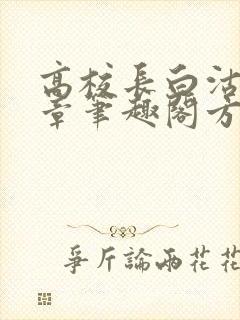 高校长白洁
章笔趣阁方
争斤論兩花花